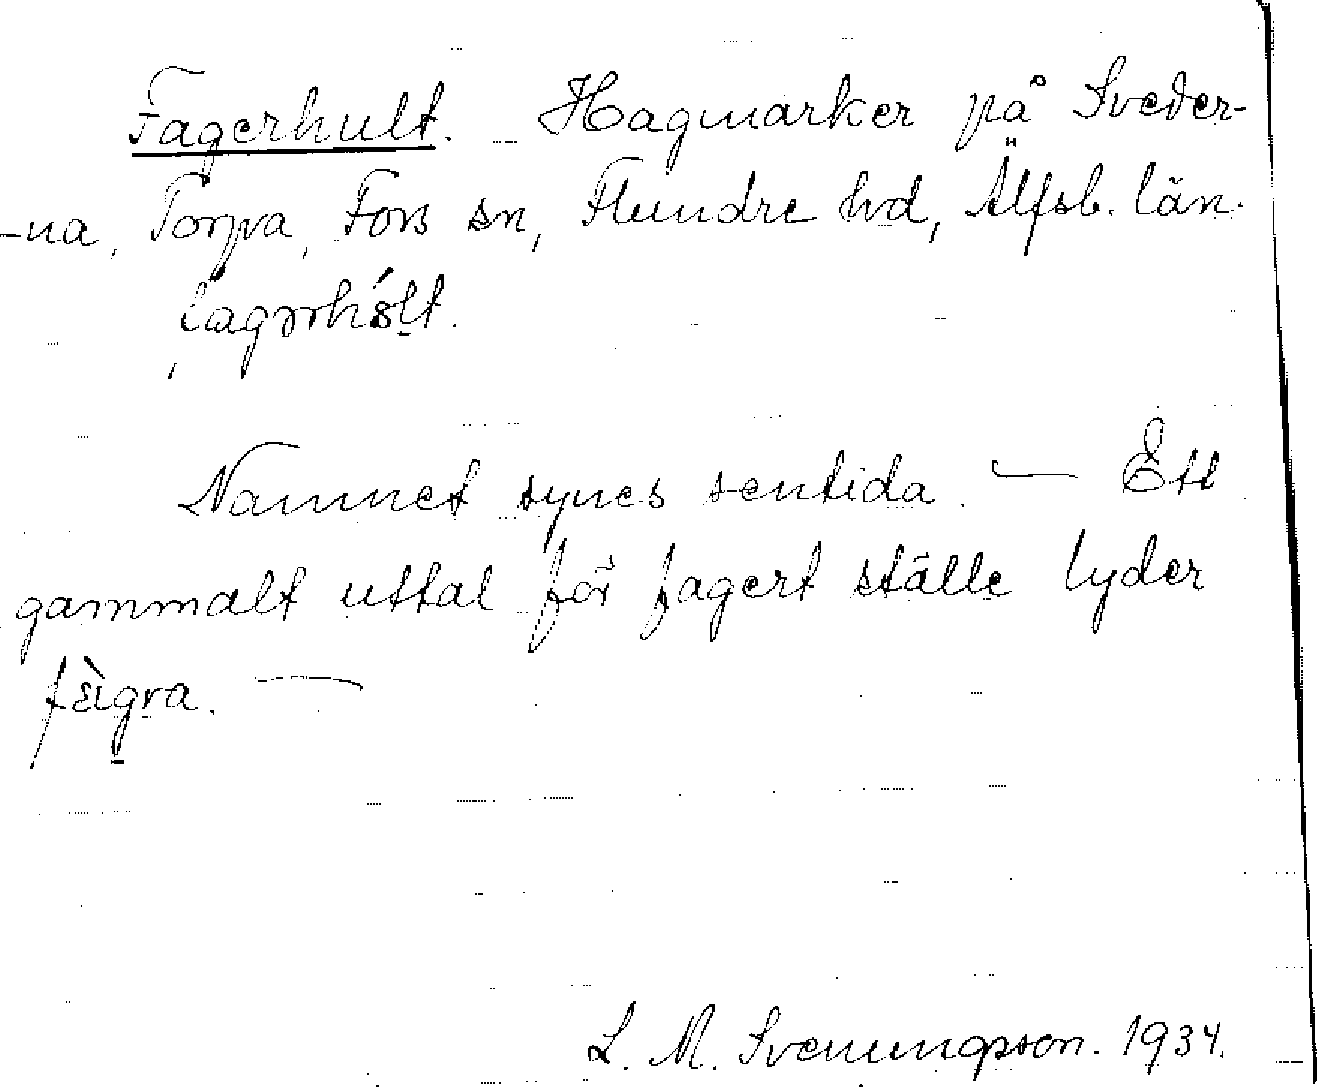 Fagerhult. Hagmarker på Sveder-
-na, Torpa, Fors sn, Flundre hd, Älfsb. län.
Namnet synes sentida. — Ett
gammalt uttal för fagert ställe lyder
fàgra. —
L. M. Svenungsson. 1934.